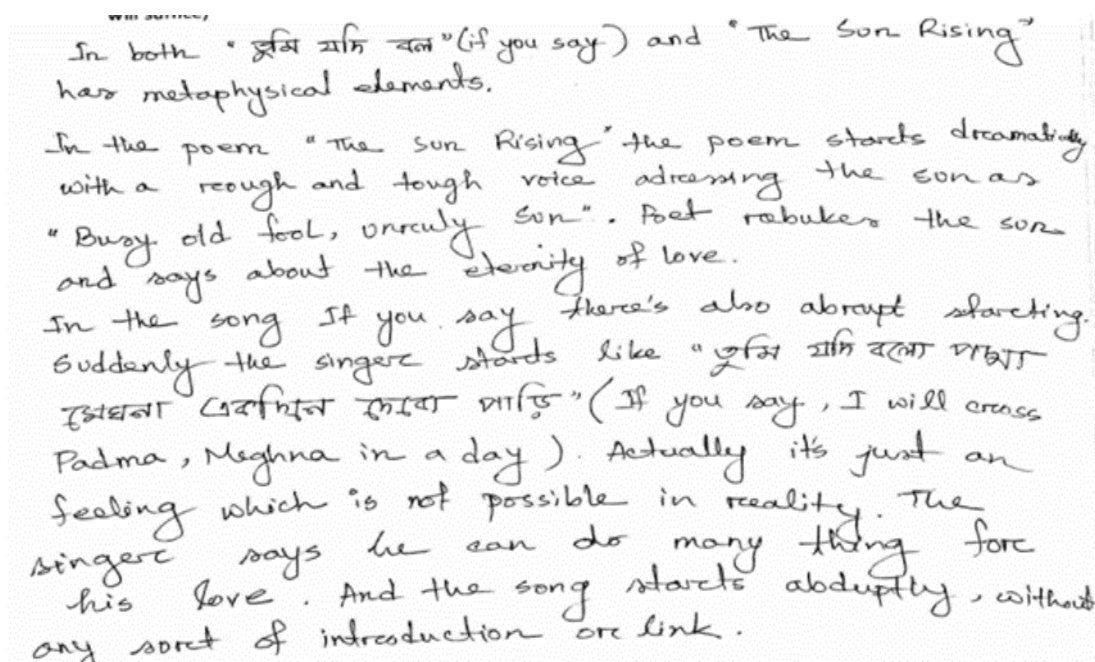 will suffice)
In both "তুমি যদি বল" (if you say) and "The Sun Rising"
has metaphysical elements.
In the poem "The Sun Rising" the poem starts dreamatically
with a rough and tough voice adressing the son as
"Busy old fool, unruly sun". Poet rebukes the sun
and says about the eternity of love.
In the song If you say there's also abrupt starting.
Suddenly the singer starts like "তুমি যদি বলো পদ্মা
মেঘনা একদিনে দেবো পাড়ি" (If you say, I will cross
Padma, Meghna in a day). Actually it's just an
feeling which is not possible in reality. The
singer says he can do many thing for
his love. And the song starts abduptly, without
any sort of introduction or link.